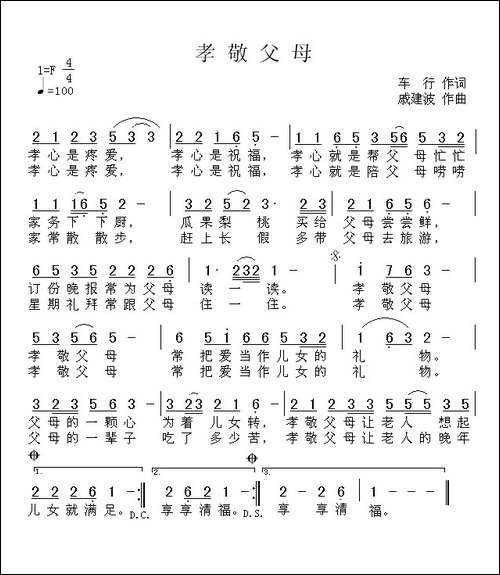 孝敬父母
1=F 4/4
♩=100
车 行 作词
戚建波 作曲
2 1 2 3 5 3 3 | 2 2 1 6 5 - | 1 1 1 6 5 3 5 5 6 5 3 2 |
孝心是疼爱, 孝心是祝福, 孝心就是帮父 母忙忙
孝心是疼爱, 孝心是祝福, 孝心就是陪父 母唠唠
1 1 1 6 5 2 - | 3 3 2 5 2 3 - | 2 2 3 5 6 5 3 2 |
家务下 下 厨, 瓜 果 梨 桃 买 给 父母尝尝鲜,
家常散 散 步, 赶 上 长 假 多 带 父母去旅游,
6 6 5 3 2 2 1 6 | 1 - 2 3 2 1 - | 1 7 6 3 - |
订份晚报常为父母 读 一 读。 孝 敬父母
星期礼拜常跟父母 住 一 住。 孝 敬父母
5 3 5 3 - | 6 5 1 6 6 5 3 2 | 1 6 3 2 - |
孝 敬父母 常 把爱当作儿女的 礼 物。
孝 敬父母 常 把爱当作儿女的 礼 物。
3 2 3 5 6 3 - | 3 2 3 2 1 6 - | 2 2 2 1 2 3 5 6 5 |
父母的一颗心 为着 儿女转, 孝敬父母让老人 想起
父母的一辈子 吃了 多少苦, 孝敬父母让老人的晚年
1. 2. 3.
2 2 2 6 1 - :‖ 2 2 2 6 1 - :‖ 2 - 2 - | 2 - 6 - | 1 - - - ‖
儿女就满足。D.C. 享享清福。D.S. 享 享清 福。